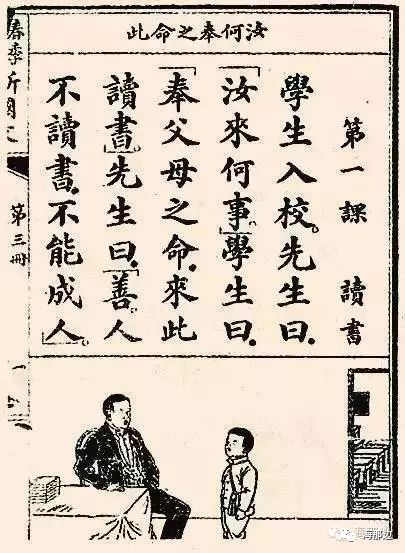 汝何奉之命此
第一課 讀書
學生入校。先生曰。
「汝來何事」。學生曰。
「奉父母之命。來此
讀書」。先生曰。「善。人
不讀書。不能成人」。
春季新國文
第三冊
一
海那边